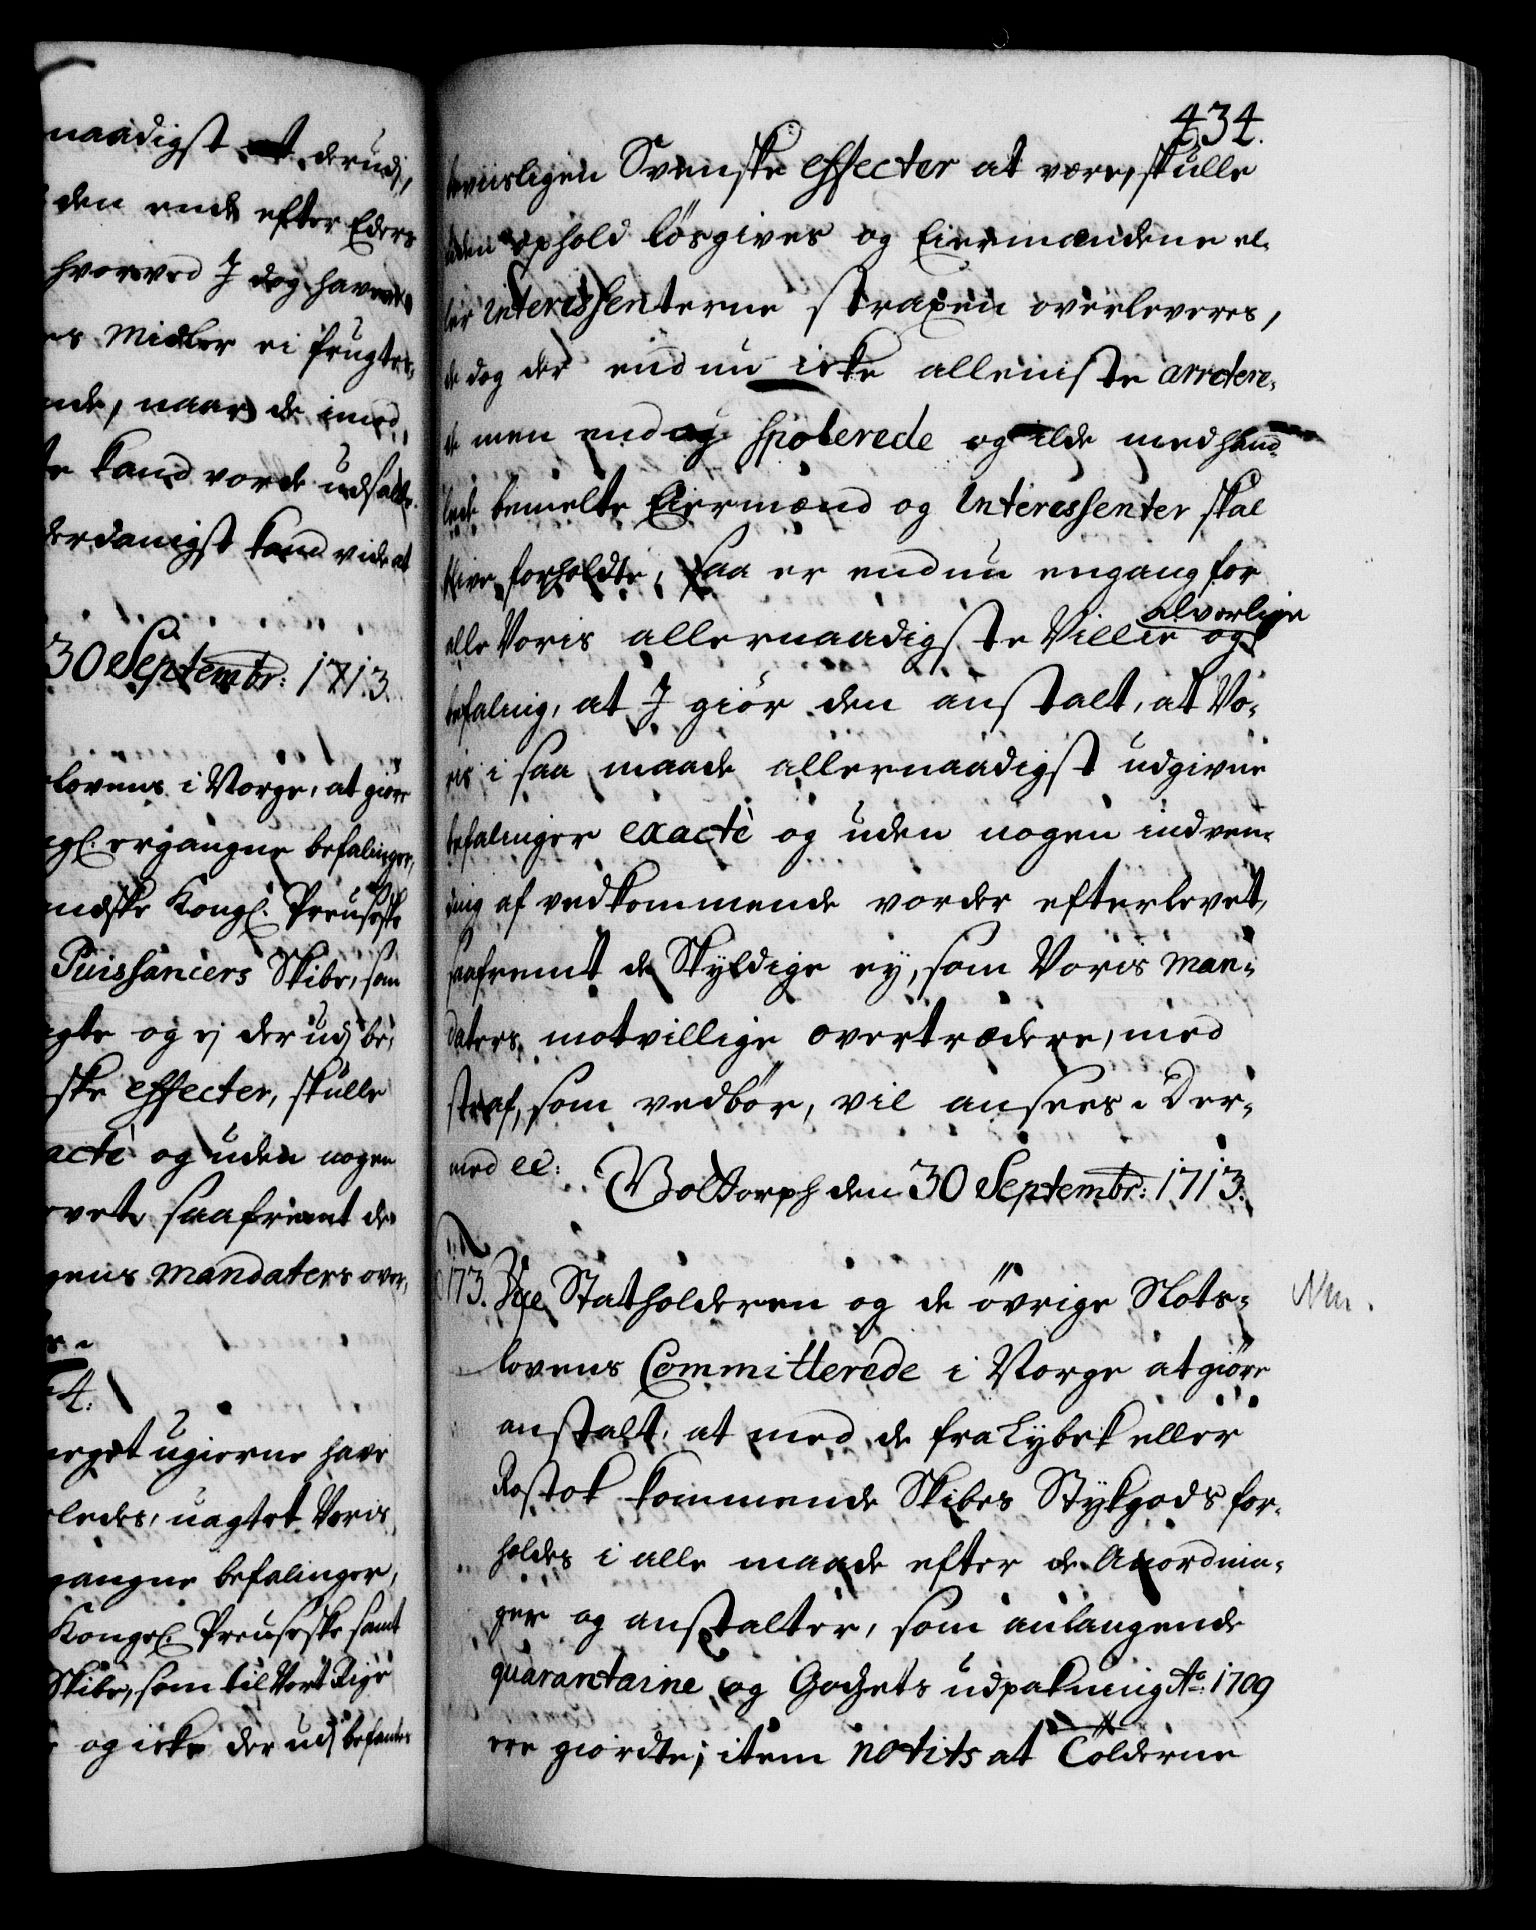 naadigst derudj,
den ende efter Eders
hvorved J dog haver
es Midler ei frugtes,
nde, naar de imod,
te kand vorde udsatte.
derdanigst kand vide at
30 Septembr: 1713.
lovens i Norge, at giøre
gl. ergangne befalinger,
ndske Kongl. Preusiske
Puissancers Skibe, som
igte og ej der udj be,
ske effecter, skulle
acté og uden nogen
evet, saafremt de
gens Mandaters over,
erget ugierne have
ledes, uagtet Voris
gangne befalinger,
Kongel. Preusiske samt
Skibe, som til Vort Rige
og icke der udj befantes
434.
beviisligen Svenske effecter at være, skulle
uden ophold løsgives og Eiermændene el-
ler Interessenterne straxen overleveres,
de dog der endnu icke alleniste arretere,
de men endog spolerede og ilde medhand-
lede bemelte Eiermænd og Interessenter skal
blive forholdte, saa er endnu engang for
alle Voris allernaadigste Villie og alvorlige
befaling, at J giør den anstalt, at Vo-
ris i saa maade allernaadigst udgivne
befalinger exacté og uden nogen indven-
ding af vedkommende vorder efterlevet,
saafremt de Skyldige ey, som Voris Man-
daters motvillige overtrædere, med
straf, som vedbør, vil ansees. Der-
med ec:
Gottorph den 30 Septembr: 1713.
173. Vice Statholderen og de øvrige Slots-
lovens Committerede i Norge at giøre
anstalt, at med de fra Lybek eller
Rostok kommende Skibes Stykgods for-
holdes i alle maade efter de Anordnin-
ger og anstalter, som anlangende
quarantaine og Godsets udpakning Ao. 1709
ere giordte; item notits at Tolderne